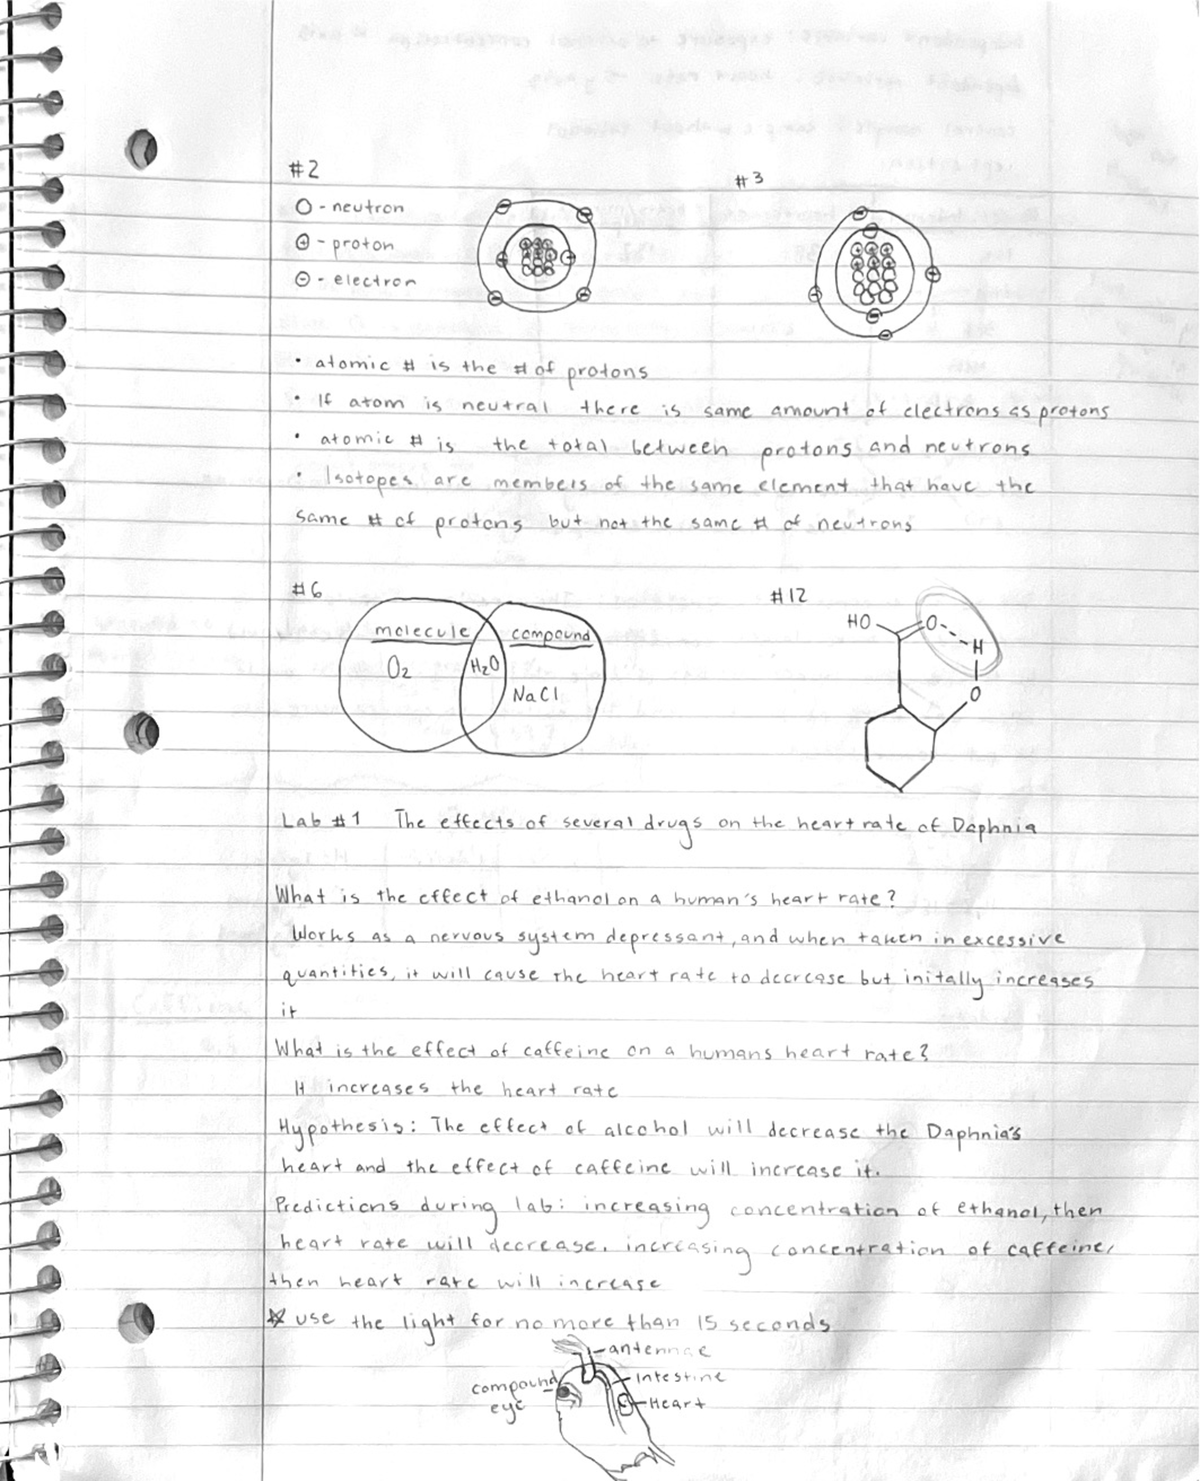 #2
#3
O - neutron
⊕ - proton
⊖ - electron
• atomic # is the # of protons
• If atom is neutral there is same amount of electrons as protons
• atomic # is the total between protons and neutrons
• Isotopes are members of the same element that have the
same # of protons but not the same # of neutrons
#6
#12
molecule compound
O₂ H₂O
NaCl
HO O
H
O
Lab #1 The effects of several drugs on the heart rate of Daphnia
What is the effect of ethanol on a human's heart rate?
Works as a nervous system depressant, and when taken in excessive
quantities, it will cause the heart rate to decrease but initally increases
it
What is the effect of caffeine on a humans heart rate?
It increases the heart rate
Hypothesis: The effect of alcohol will decrease the Daphnia's
heart and the effect of caffeine will increase it.
Predictions during lab: increasing concentration of ethanol, then
heart rate will decrease. increasing concentration of caffeine,
then heart rate will increase
☆ use the light for no more than 15 seconds
antennae
compound eye
Intestine
Heart